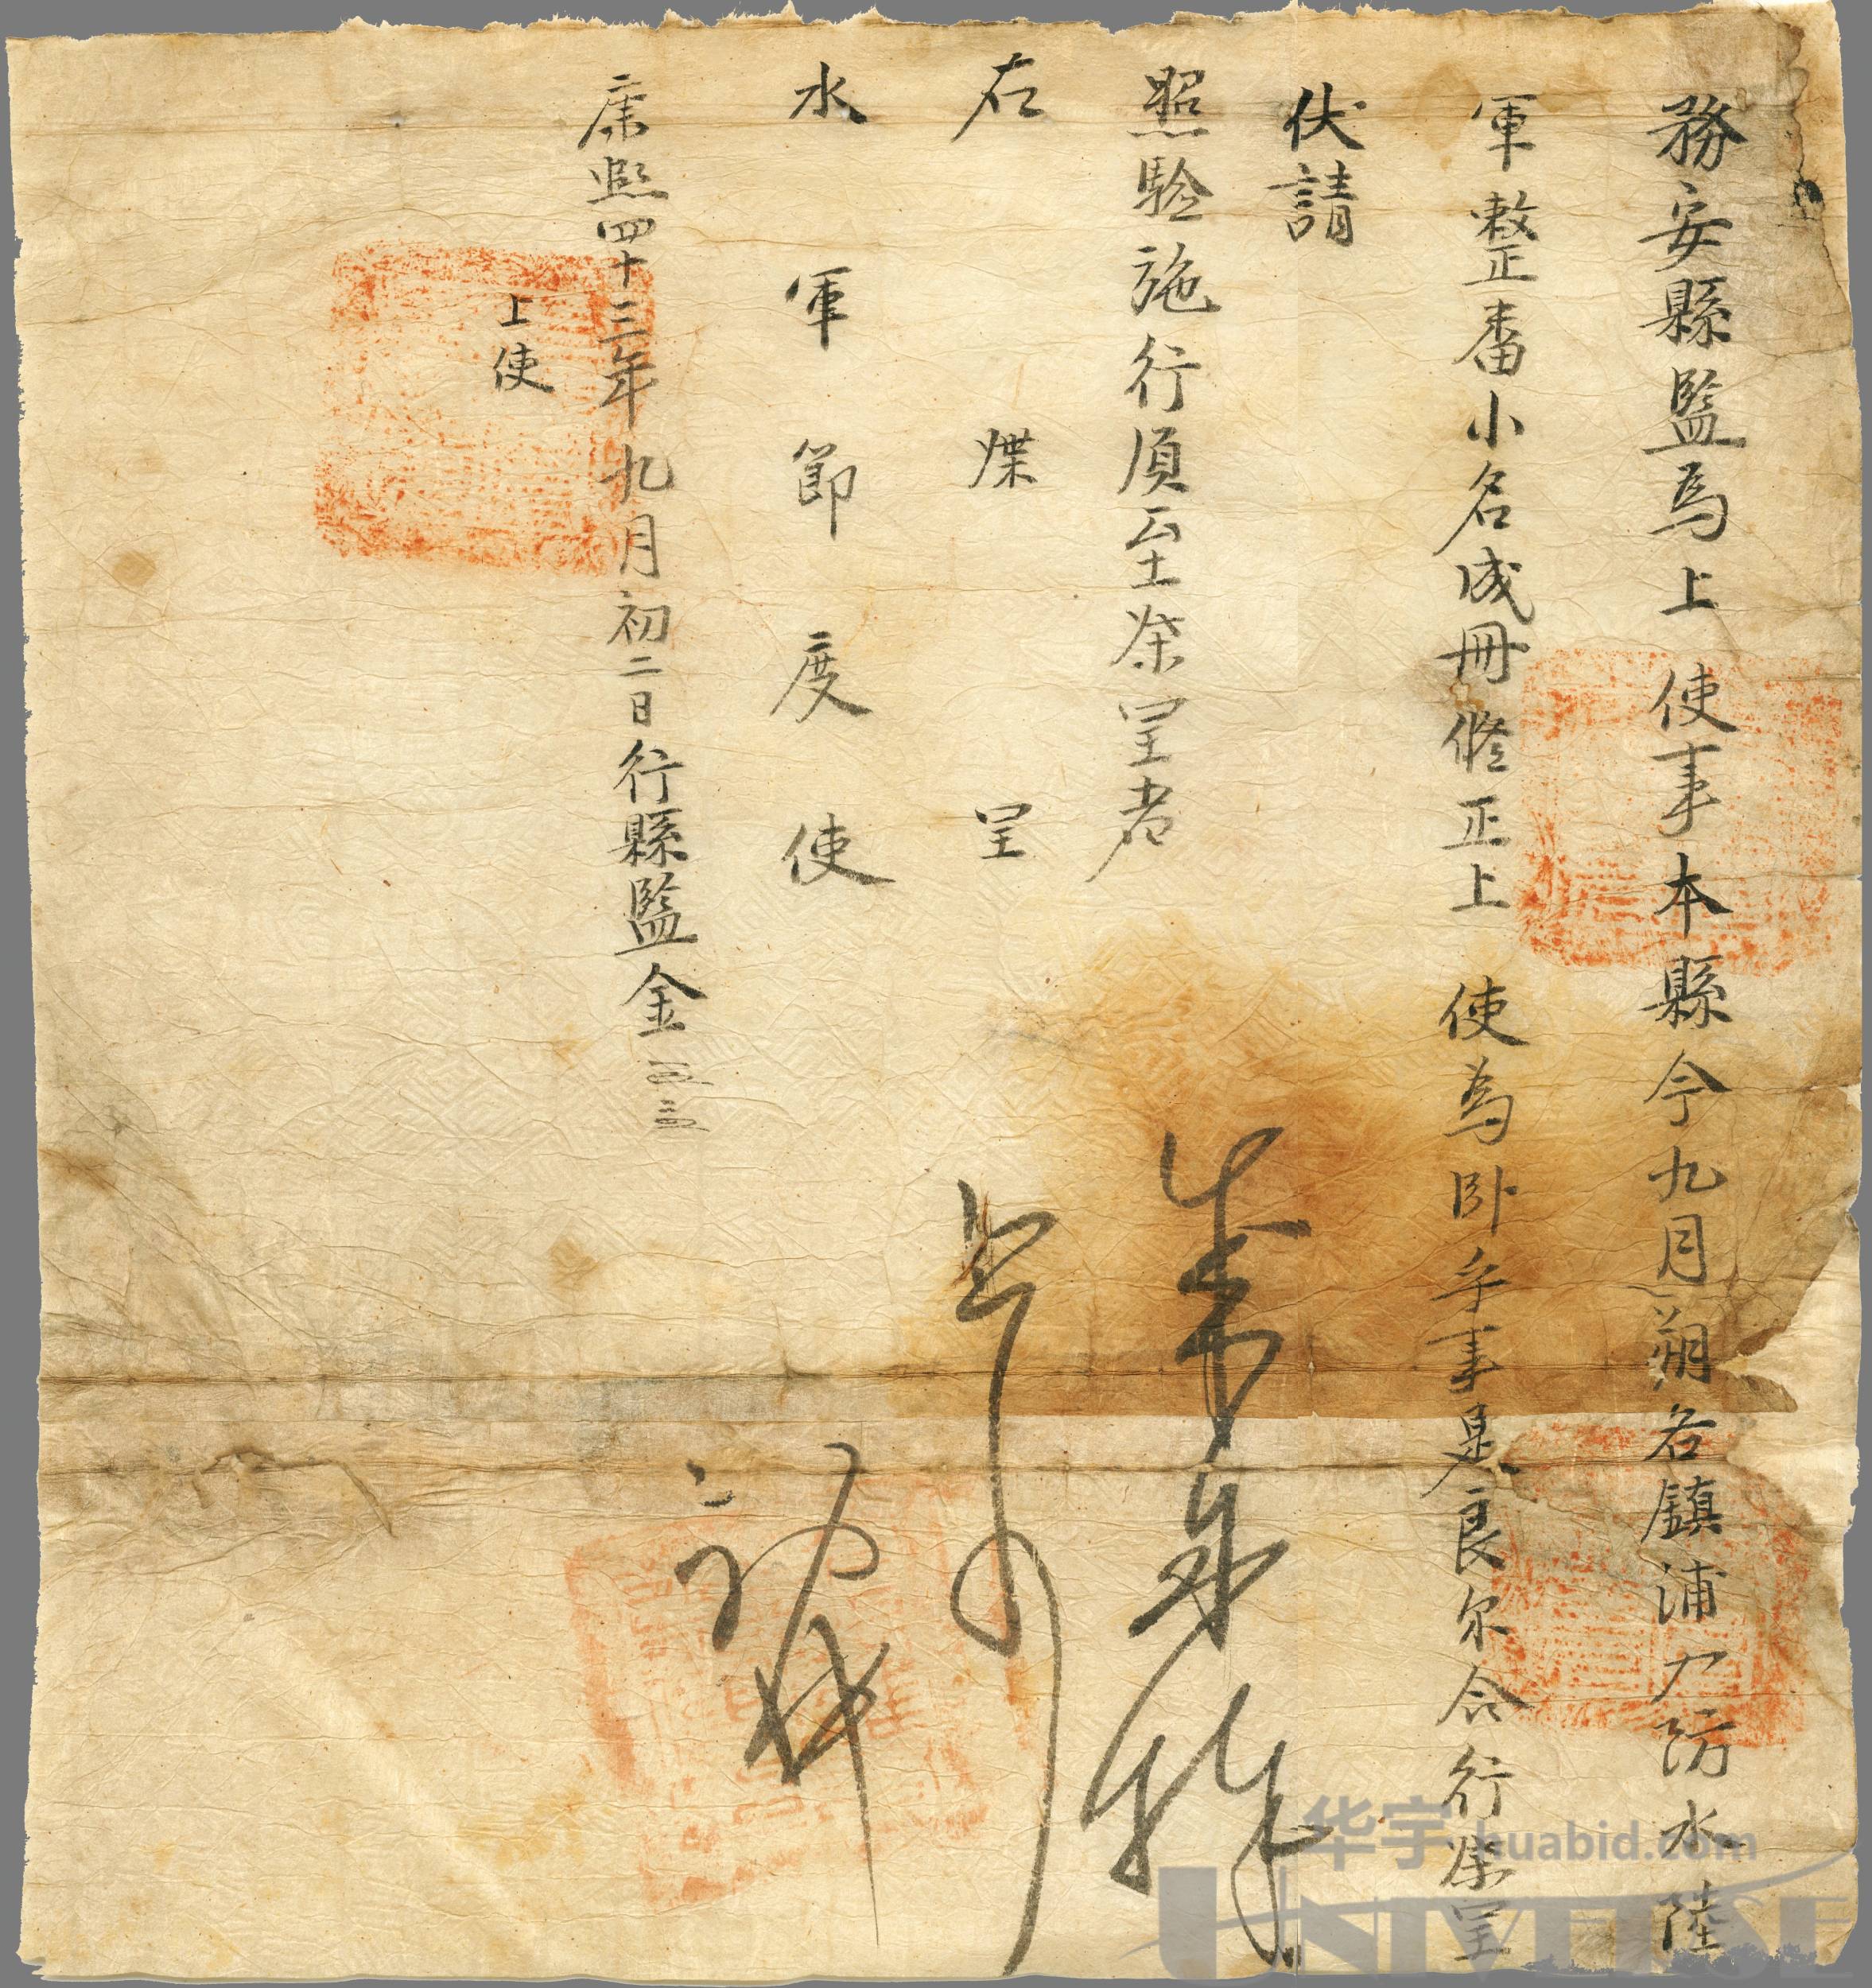 務安縣監為上 使事本縣今九月朔各鎮浦入防水陸
軍整番小名成冊修正上 使為卧乎事是良尔合行牒呈
伏請
照驗施行須至牒呈者
右 牒 呈
水 軍 節 度 使
康熙四十三年九月初二日行縣監金
上使
华宇 huabid.com
UNIVERSE